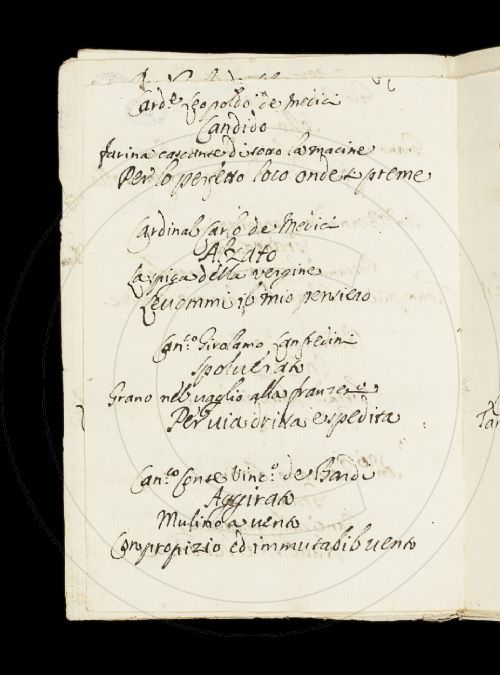 Card.e Leopoldo de Medici
Candido
farina cascante di sotto la macine
Per lo perfetto loco onde si preme
Cardinal Carlo de Medici
Alzato
La spiga della vergine
Levommi il mio pensiero
Can.co Girolamo Lanfredini
Spoluerato
Grano nel vaglio alla franzese
Per via dritta e spedita
Can.co Conte Vinc.o de Bardi
Aggirato
Mulino a vento
Con propizio ed immutabil vento